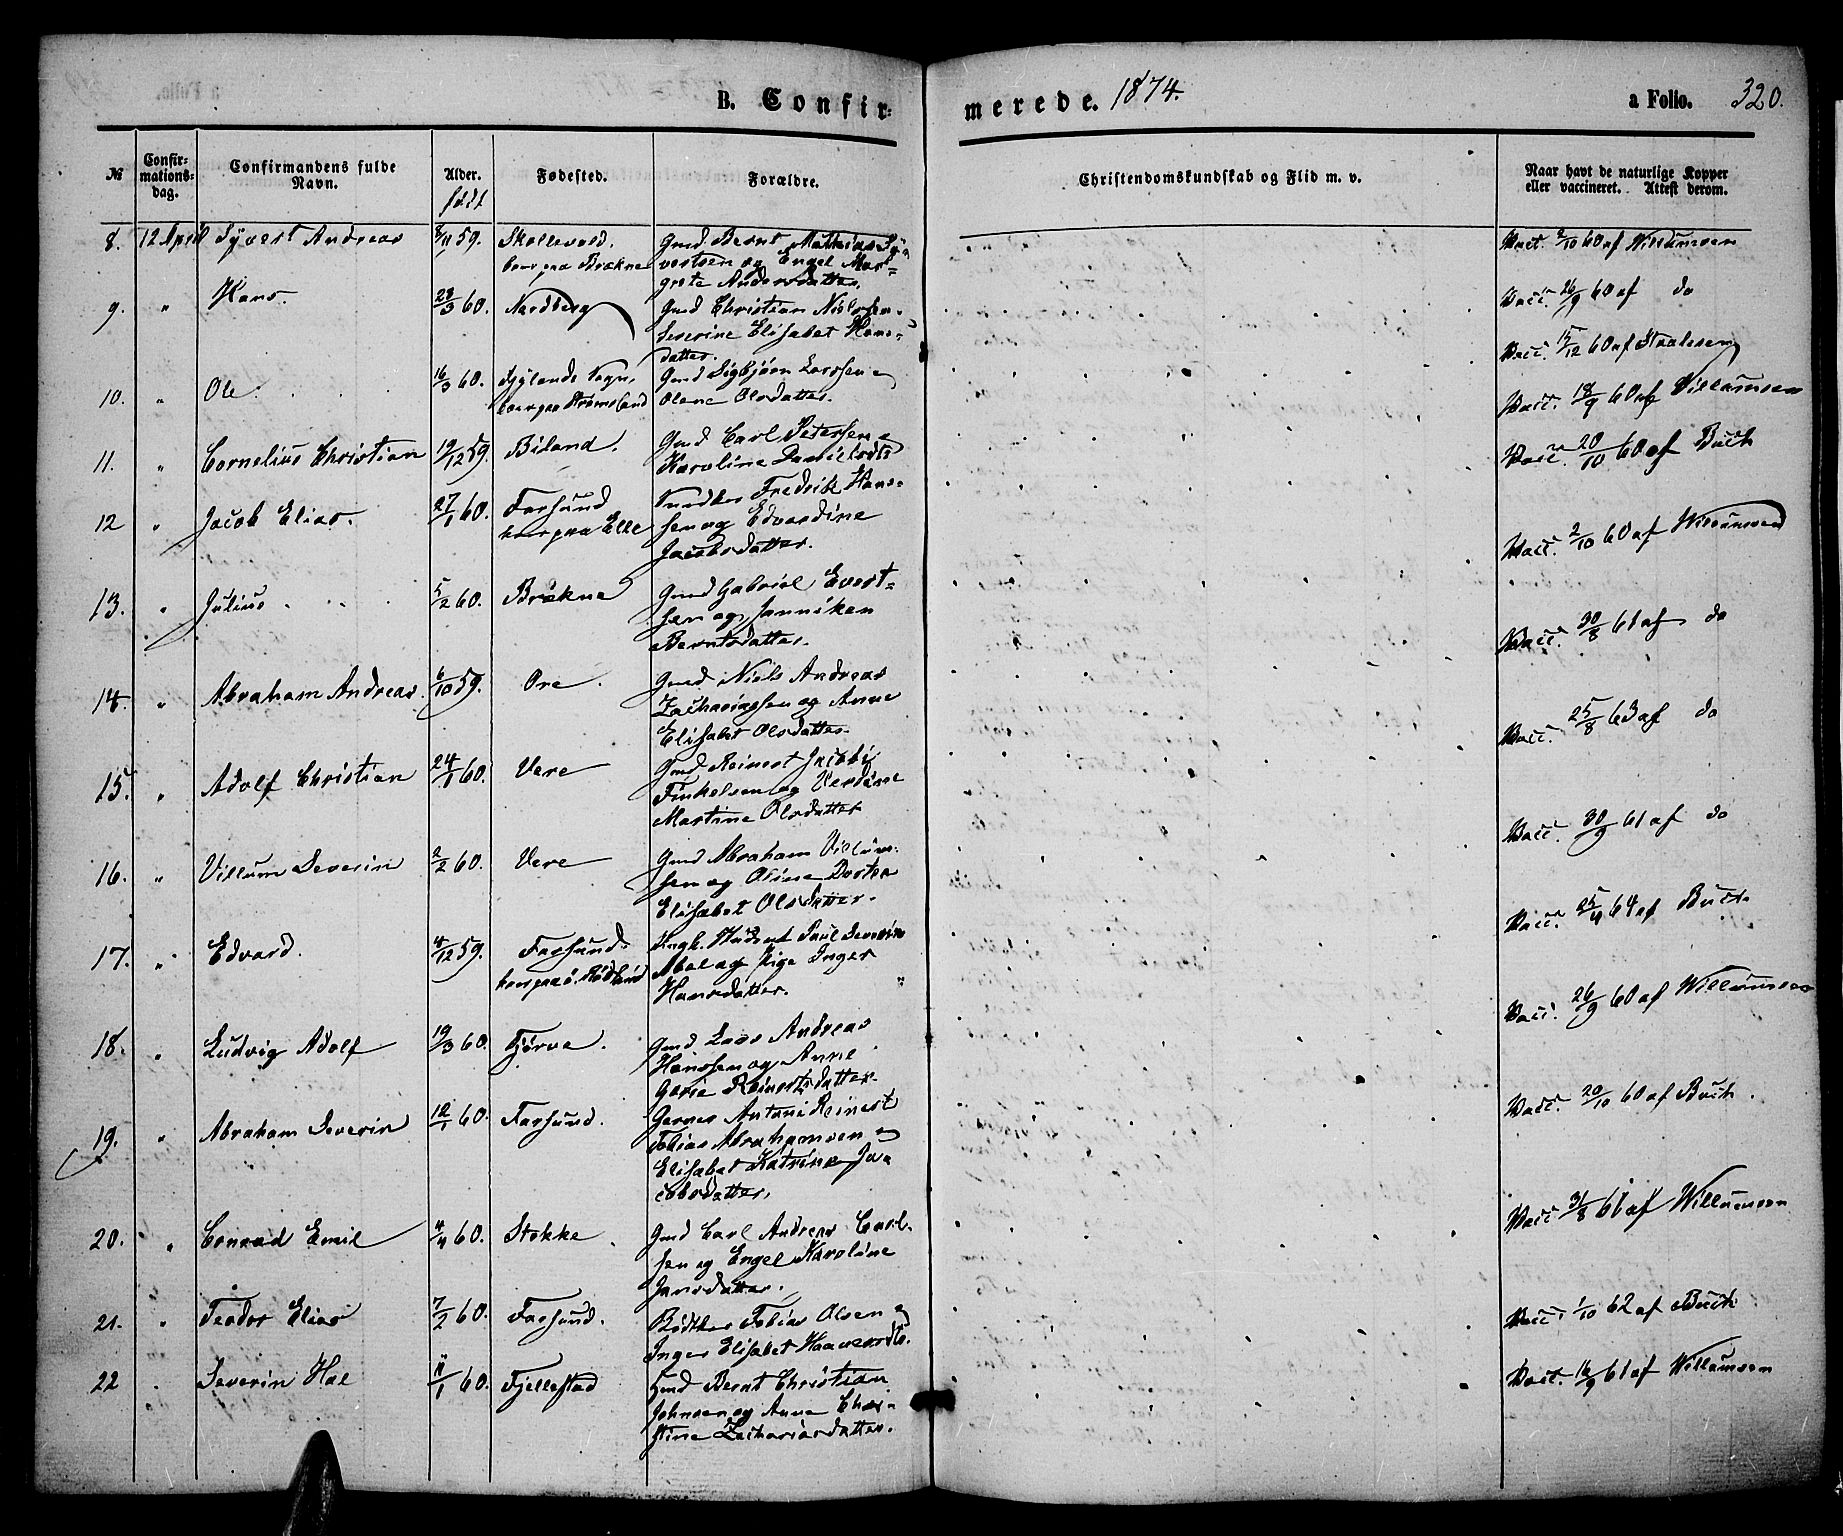 B. Confir-
merede. 1874.
a Folio. 320.
№
Confir-
mations-
dag.
Confirmandens fulde
Navn.
Alder.
født
Fødested.
Forældre.
Christendomskundskab og Flid m. v.
Naar havt de naturlige Kopper
eller vaccineret. Attest derom.
8. 12 April Syvert Andreas 8/11 59. Skollevold. Gmd. Bernt Mathias Sy-
boer paa Brækne vertsen og Engel Mar-
grete Andersdatter.
Vacc. 2/10 60 af Willumsen
9. " Hans. 28/3 60. Nordberg Gmd Christian Nielssen
Severine Elisabet Hans-
datter.
Vacc. 26/9 60 af do
10. " Ole. 16/3 60. Sogn, Gmd Sigbjörn Larssen og
boer paa Strömsland Olene Olsdatter.
Vacc. 15/12 60 af Staalesen
11. " Cornelius Christian 19/12 59. Biland. Gmd Carl Petersen og
Karoline Danielsdtr
Vacc. 18/9 60 af Villumsen
12 " Jacob Elias. 27/1 60. Farsund Fredrik Hans-
boer paa Elle sen og Edvardine
Jacobsdatter.
Vacc. 20/10 60 af Buch
13. " Julius 5/2 60. Brækne Gmd Gabriel Evert-
sen og Janniken
Berntsdatter.
Vacc. 2/10 60 af Willumsen
14. " Abraham Andreas. 6/10 59. Ore. Gmd Niels Andreas
Zachariassen og Anne
Elisabet Olsdatter.
Vacc. 30/8 61 af do
15. " Adolf Christian 24/1 60. Vere Gmd Reinert Jacobi
Finkelsen og Verdine
Martine Olsdatter
Vacc. 25/8 63 af do
16. " Villum Severin 2/2 60. Vere Gmd Abraham Villum-
sen og Oline Dortea
Elisabet Olsdatter.
Vacc. 30/9 61 af do
17. " Edvard. 4/12 59. Farsund. Ungk. Student Paul Severin
Abel og Pige Inger
Hansdatter.
Vacc. 25/4 64 af Buch
18. " Ludvig Adolf 19/3 60. Fjørve. Gmd Lars Andreas
Hanssen og Anne
Gurie Reinertsdatter.
Vacc. 26/9 60 af Willumsen
19. " Abraham Severin 12/1 60. Farsund. Garver Antoni Reinert
Tobias Abrahamsen og
Elisabet Katrine Ja-
cobsdatter.
Vacc. 20/10 60 af Buch.
20. " Conrad Emil 4/4 60. Stokke. Gmd Carl Andreas Carl-
sen og Engel Karoline
Jansdatter.
Vacc. 31/8 61 af Willumsen
21. " Teodor Elias 7/2 60. Farsund. Bödker Tobias Olsen og
Inger Elisabet Haaversdtr.
Vacc. 1/10 62 af Buch
22 . Severin Hal 11/1 60. Fjellestad Gmd Bernt Christian
Johnsen og Anne Chri-
stine Zachariasdatter.
Vacc. 16/9 61 af Willumsen